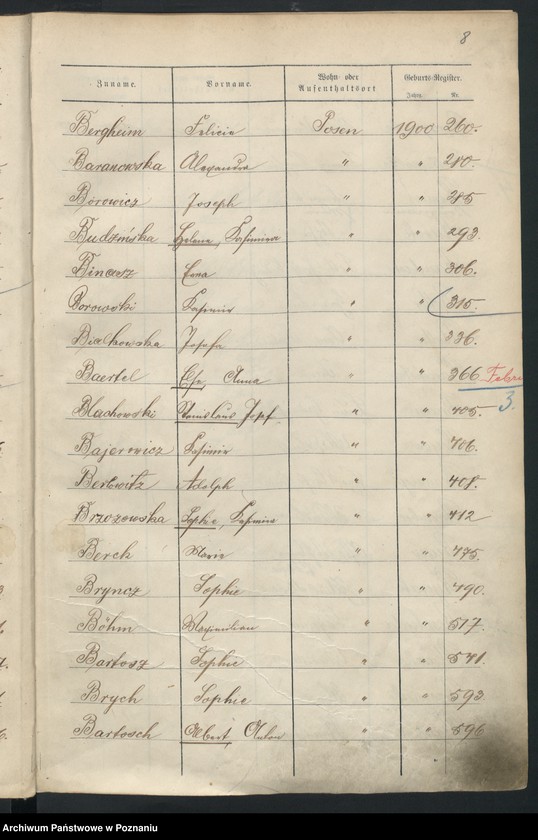 8
Zuname. Vorname. Wohn- oder Aufenthaltsort Geburts-Register.
Jahr. Nr.
Bergheim Felicia Posen 1900 260.
Baranowska Alexandra " " 280.
Borowicz Joseph " " 285
Budzińska Helene, Kasimira " " 293.
Bincasz Erna " " 306.
Borowski Kasimir " " 315.
Białkowska Josefa " " 336.
Baertel Else, Anna " " 366 Febru
3.
Blachowski Stanislaus Josef. " " 405.
Bajerwicz Kasimir " " 406.
Berkwitz Adolph " " 408.
Brzozowska Sophie, Kasimira " " 412
Berch Marie " " 475.
Bryncz Sophie " " 490.
Böhm Maximilian " " 517.
Bartosz Sophie " " 541.
Brych Sophie " " 593
Bartosch Albert, Anton " " 596
Archiwum Państwowe w Poznaniu